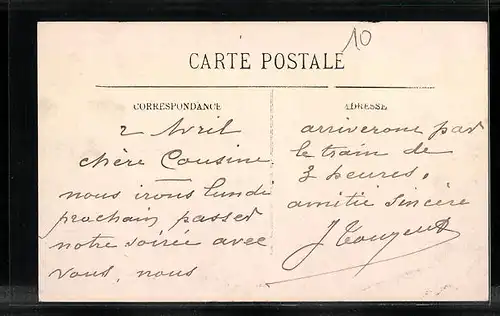 10
CARTE POSTALE
CORRESPONDANCE
2 Avril
chère Cousine
nous irons lundi
prochain passer
notre soirée avec
vous, nous
ADRESSE
arriverons par
le train de
3 heures.
amitié sincère
J